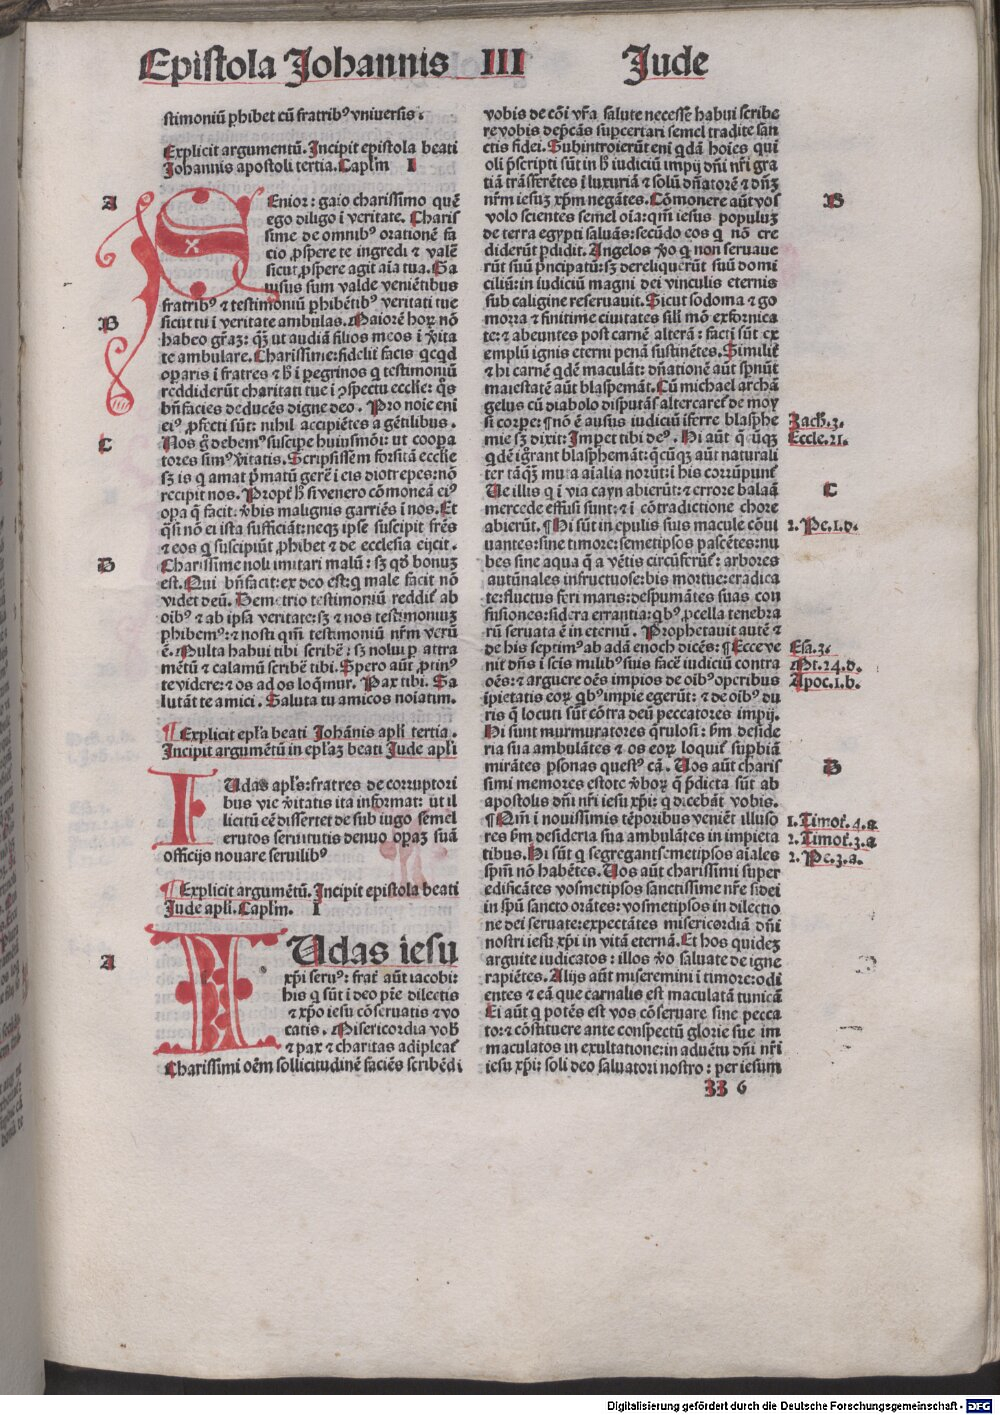 Epistola Johannis III Jude
stimoniū ꝑhibet cū fratribꝰ vniuersis.
Explicit argumentū. Incipit epistola beati
Johannis apostoli tertia. Caplm I
A
Senior: gaio charissimo quē
ego diligo ī veritate. Charis
sime de omnibꝰ orationē fa
cio ꝓspere te ingredi ⁊ valē
sicut ꝓspere agit aīa tua. Ga
uisus sum valde veniētibus
fratribꝰ ⁊ testimoniū ꝑhibētibꝰ veritati tue
B
sicut tu ī veritate ambulas. Maiorē hoꝝ nō
habeo gr̄aꝫ: qꝫ ut audiā filios meos ī ꝟita
te ambulare. Charissime: fidelit̄ facis qcqd
oꝑaris ī fratres ⁊ hͦ ī ꝑegrinos q testimoniū
reddiderūt charitati tue ī ꝯspectu eccl̄ie: q̊s
bn̄ facies deducēs digne deo. Pro noīe eni
eiꝰ ꝓfecti sūt: nihil accipiētes a gētilibus.
C
Nos gͦ debemꝰ suscipe huiusmōi: ut coopa
tores simꝰ ꝟitatis. Scripsissem forsitā eccl̄ie
sꝫ is q amat p̄matū gerē ī eis diotrepes: nō
recipit nos. Propt̄ hͦ si venero cōmoneā eiꝰ
opa q̄ facit: ꝟbis malignis garriēs ī nos. Et
q̄si nō ei ista sufficiāt: neqꝫ ipse suscipit frēs
⁊ eos q suscipiūt ꝓhibet ⁊ de ecclesia eijcit.
D
Charissime noli imitari malū: sꝫ qd̄ bonuꝫ
est. Qui bn̄ facit: ex deo est: q male facit nō
videt deū. Demetrio testimoniū reddit̄ ab
oībꝰ ⁊ ab ipsa veritate: sꝫ ⁊ nos testimoniuꝫ
ꝑhibemꝰ: ⁊ nosti qm̄ testimoniū nr̄m verū
ē. Multa habui tibi scribē: sꝫ nolui ꝑ attra
mētū ⁊ calamū scribē tibi. Spero aūt ꝓtinꝰ
te videre: ⁊ os ad os loq̄mur. Pax tibi. Sa
lutāt te amici. Saluta tu amicos noīatim.
¶ Explicit epl̄a beati Johānis apl̄i tertia.
Incipit argumētū in epl̄aꝫ beati Jude apl̄i
IUdas apl̄s: fratres de corruptori
bus vie ꝟitatis ita informat: ut il
licitū eē dissertet de sub iugo semel
erutos seruitutis denuo opaꝫ suā
officijs nouare seruilibꝰ
¶ Explicit argumētū. Incipit epistola beati
Jude apl̄i. Caplm. I
A
IUdas iesu
xp̄i seruꝰ: frat̄ aūt iacobi:
his q sūt ī deo pr̄e dilectis
⁊ xp̄o iesu cōseruatis ⁊ vo
catis. Misericordia vob̄
⁊ pax ⁊ charitas adipleat̄
Charissimi oēm sollicitudinē faciēs scribēdi
vobis de cōi vr̄a salute necesse habui scribe
re vobis dep̄cās supcertari semel tradite san
ctis fidei. Subintroierūt eni qdā hoīes qui
oli p̄scripti sūt in hͦ iudiciū impij dn̄i nr̄i gra
tiā trāsferētes ī luxuriā ⁊ solū dn̄atorē ⁊ dn̄ꝫ
nr̄m iesuꝫ xp̄m negātes. Cōmonere aūt vos
B
volo scientes semel oīa: qm̄ iesus populuꝫ
de terra egypti saluās: secūdo eos q nō cre
diderūt ꝑdidit. Angelos ꝟo q non seruaue
rūt suū p̄ncipatū: sꝫ dereliquerūt suū domi
ciliū: in iudiciū magni dei vinculis eternis
sub caligine reseruauit. Sicut sodoma ⁊ go
morra ⁊ finitime ciuitates sili mō exfornica
te: ⁊ abeuntes post carnē alterā: facti sūt ex
emplū ignis eterni penā sustinētes. Similit̄
⁊ hi carnē qdē maculāt: dn̄ationē aūt spnūt
maiestatē aūt blasphemāt. Cū michael archā
gelus cū diabolo disputās altercaret̄ de moy
si corpe: nō ē ausus iudiciū īferre blasphe
Zach. 3.
mie sꝫ dixit: Impet tibi deꝰ. Hi aūt q̄ cūqꝫ
Eccle. 21.
qdē ignorant blasphemāt: q̄cūqꝫ aūt naturali
ter tāqꝫ muta aīalia norūt: ī his corrūpunt̄
Ue illis q ī via cayn abierūt: ⁊ errore balaā
C
mercede effusi sunt: ⁊ ī cōtradictione chore
abierūt. ¶ Hi sūt in epulis suis macule cōui
2. Pe. 1. d.
uantes: sine timore: semetipsos pascētes: nu
bes sine aqua q̄ a vētis circūferūt̄: arbores
autūnales infructuose: bis mortue: eradica
te: fluctus feri maris: despumātes suas con
fusiones: sidera errantia: qbꝰ ꝓcella tenebra
rū seruata ē in eternū. Prophetauit autē ⁊
de his septimꝰ ab adā enoch dicēs: ¶ Ecce ve
Esa. 3.
nit dn̄s ī scis milibꝰ suis facē iudiciū contra
Mt. 24. d.
oēs: ⁊ arguere oēs impios de oībꝰ operibus
Apoc. 1. b.
īpietatis eoꝝ qbꝰ impie egerūt: ⁊ de oībꝰ du
ris q̄ locuti sūt cōtra deū peccatores impij.
Hi sunt murmuratores q̄rulosi: ẜm deside
ria sua ambulātes ⁊ os eoꝝ loquit̄ supbiā
mirātes psonas questꝰ cā. Uos aūt charis
D
simi memores estote ꝟboꝝ q̄ p̄dicta sūt ab
apostolis dn̄i nr̄i iesu xp̄i: q dicebāt vobis.
¶ Qm̄ ī nouissimis tēporibus veniēt illuso
1. Timot̄. 4. a
res ẜm desideria sua ambulātes in impieta
2. Timot̄. 3. a
tibus. Hi sūt q segregant semetipsos aīales
2. Pe. 3. a.
spm̄ nō habētes. Uos aūt charissimi super
edificātes vosmetipsos sanctissime nr̄e fidei
in spū sancto orātes: vosmetipsos in dilectio
ne dei seruate: expectātes misericordiā dn̄i
nostri iesu xp̄i in vitā eternā. Et hos quideꝫ
arguite iudicatos: illos ꝟo saluate de igne
rapiētes. Alijs aūt miseremini ī timore: odi
entes ⁊ eā que carnalis est maculatā tunicā
Ei aūt q potēs est vos cōseruare sine pecca
to: ⁊ cōstituere ante conspectū glorie sue im
maculatos in exultatione: in aduētu dn̄i nr̄i
iesu xp̄i: soli deo saluatori nostro: per iesum
33 6
Digitalisierung gefördert durch die Deutsche Forschungsgemeinschaft - DFG